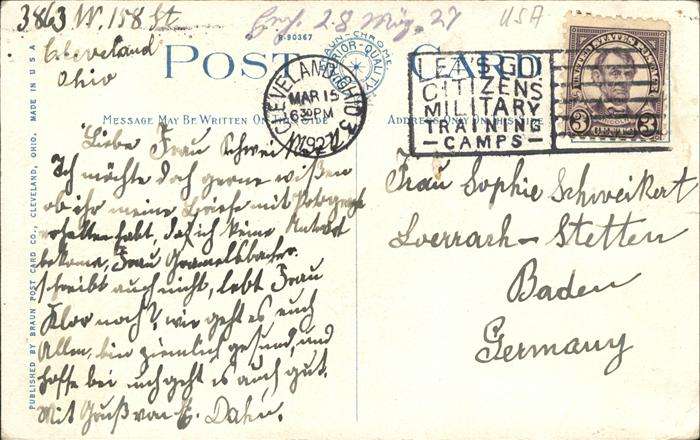 3863 W. 158 St
Cleveland
Ohio
Erh. 28 März 27
USA
B-90367
POST CARD
BRAUN-CHROME
SUPERIOR-QUALITY
MESSAGE MAY BE WRITTEN ON THIS SIDE
ADDRESS ONLY ON THIS SIDE
CLEVELAND, OHIO
MAR 15
630 PM
1927
LET'S GO!
CITIZENS
MILITARY
TRAINING
CAMPS
UNITED STATES POSTAGE
LINCOLN
3 CENTS 3
Liebe Frau Schweikert
Ich möchte doch gerne wißen
ob ihr meine Briefe mit Fotograf
erhalten habt, daß ich keine Antwort
bekome, Frau
schreibt auch nicht, lebt Frau
Klor noch? wie geht es euch
Allen, bin ziemlich gesund, und
hoffe bei euch geht es auch gut.
Mit Gruß von E. Dahn.
Frau Sophie Schweikert
Loerrach-Stetten
Baden
Germany
PUBLISHED BY BRAUN POST CARD CO., CLEVELAND, OHIO. MADE IN U S A